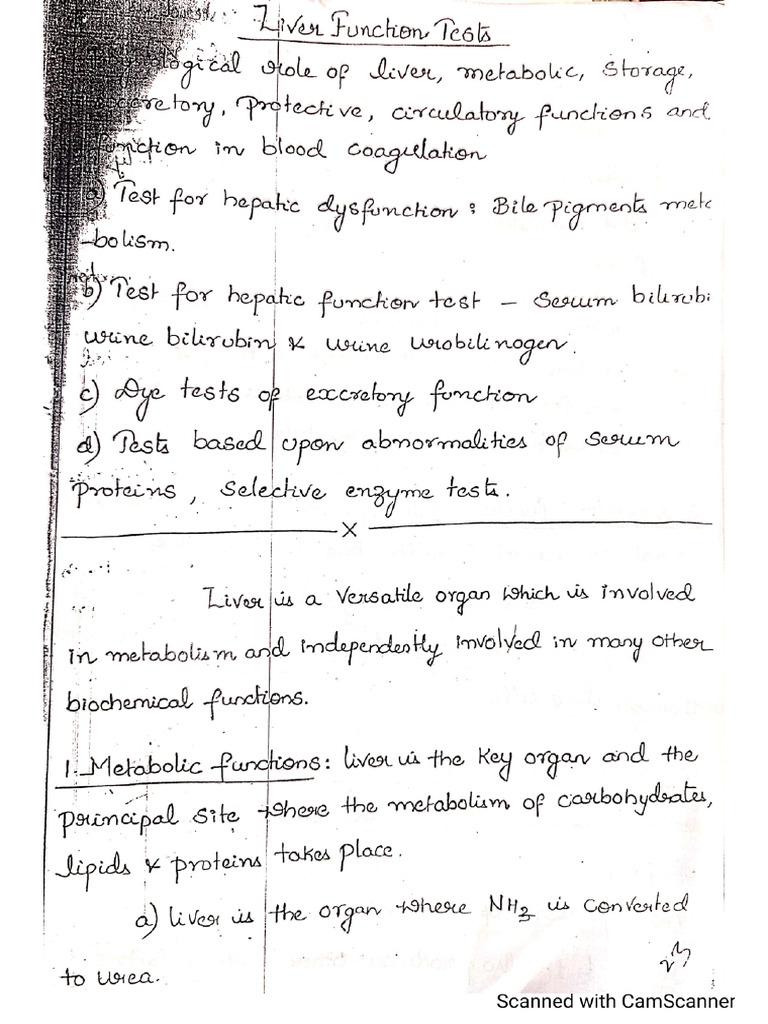 Liver Function Tests
logical role of liver, metabolic, storage,
cretory, protective, circulatory functions and
function in blood coagulation
a) Test for hepatic dysfunction : Bile pigments meta
-bolism.
b) Test for hepatic function test – Serum bilirubi
urine bilirubin & urine urobilinogen.
c) Dye tests of excretory function
d) Tests based upon abnormalities of serum
proteins, selective enzyme tests.
X
Liver is a versatile organ which is involved
in metabolism and independently involved in many other
biochemical functions.
1. Metabolic functions: liver is the key organ and the
principal site where the metabolism of carbohydrates,
lipids & proteins takes place.
a) liver is the organ where NH3 is converted
to urea.
Scanned with CamScanner